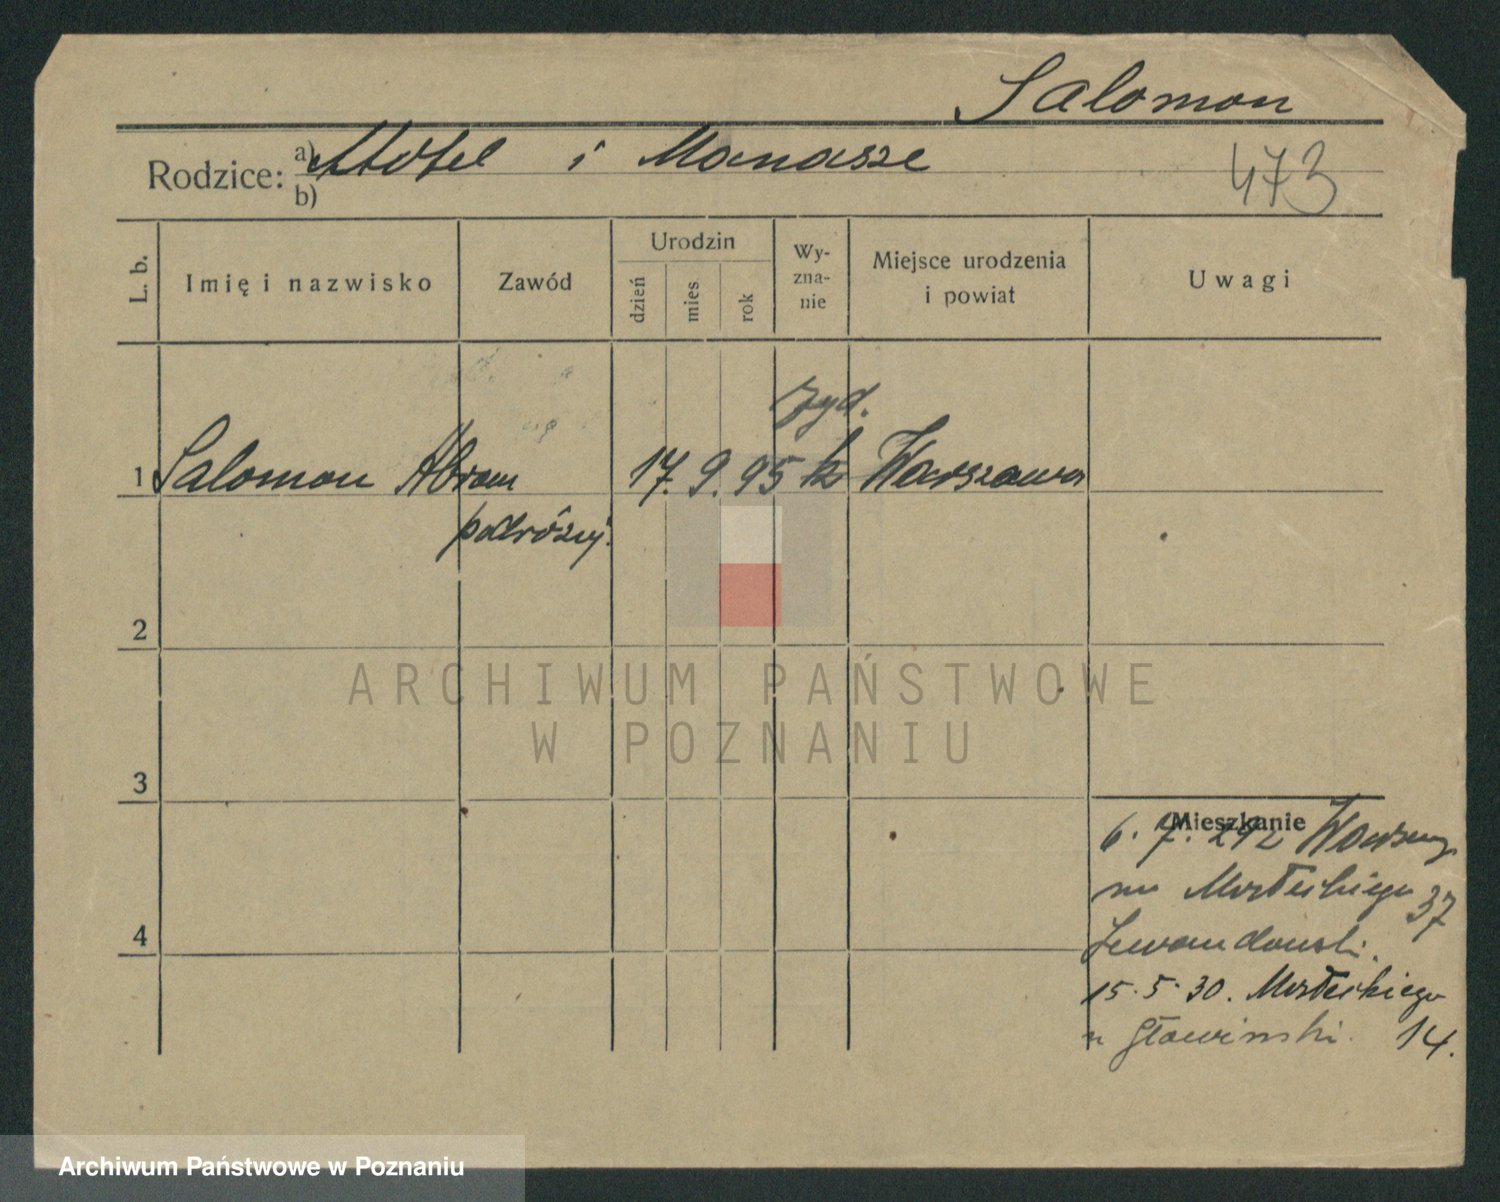 Salomon
Rodzice: a) Motel i Manasze
b)
473
L. b.
Imię i nazwisko
Zawód
Urodzin
dzień
mies.
rok
Wy-
zna-
nie
Miejsce urodzenia
i powiat
Uwagi
żyd.
1 Salomon Abram 17. 9. 95 k Warszawa
podróżuj.
2
ARCHIWUM PAŃSTWOWE
W POZNANIU
3
Mieszkanie
6. 7. Warszawy
37
4
Lewandowski.
15. 5. 30.
u Głowinski. 14.
Archiwum Państwowe w Poznaniu